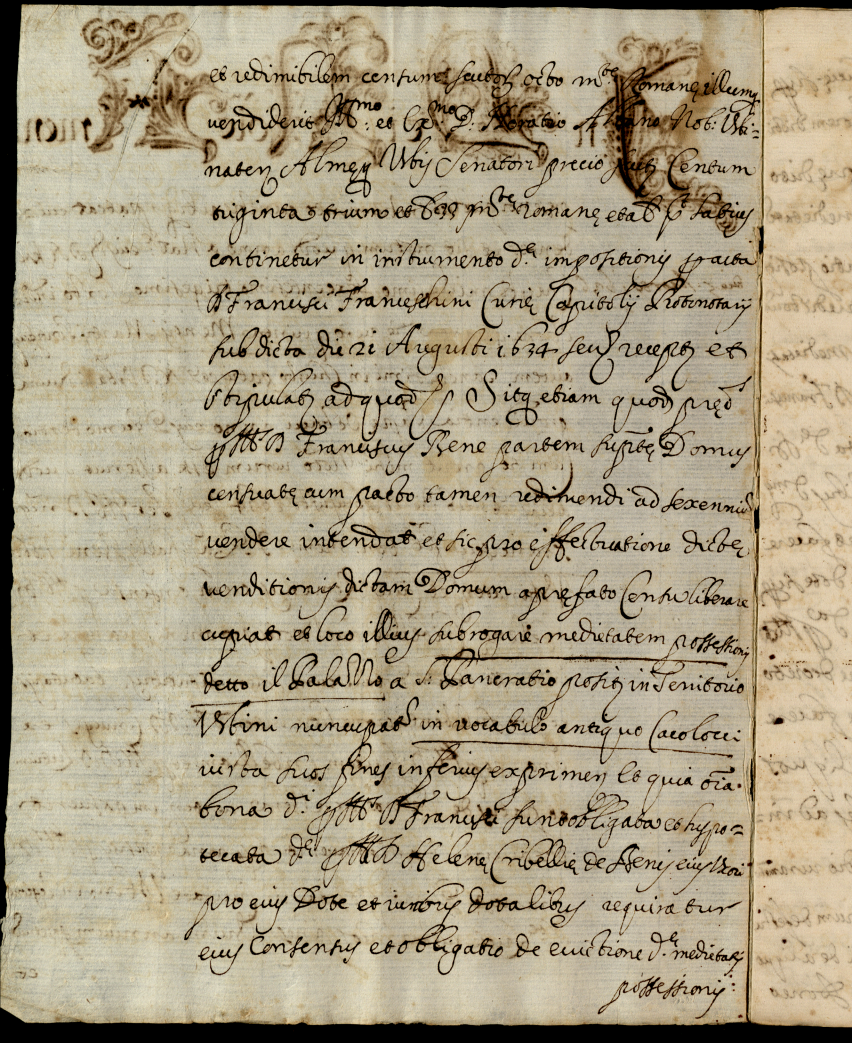 et redimibilem centum scutor octo m.te Romane illumq
vendiderit Ill.mo et Ex.mo D. Horatio Albano Nob. Urbi=
naten Almeq Urbis Senatori precio scut Centum
triginta trium et 33 m.te romane et al p.t latius
continetur in instrumento d.e impositionis facta
D Francisci Franceschini Curie Capitolij Protonotarij
sub dicta die 21 Augusti 1634 seu recept et
stipulat ad quod Sitq etiam quod pred.s
D Franciscus Bene partem supte Domus
censuate cum pacto tamen redimendi ad sexenniu
vendere intendat et sic pro effectuatione dicte
venditionis dictam Domum a prefato Censu liberare
cupiat et loco illius subrogare medietatem possessionis
detto il Palazzo a S. Pancratio posit in Territorio
Urbini nuncupat in vocabulo antiquo Cacolocci
iuxta suos fines inferius exprimen Et quia oia
bona d.i D Francisci sunt obligata et hypo=
tecata d.e Helene Cribellie de Benis eius Uxori
pro eius Dote et iuribus dotalibus requiratur
eius Consensus et obligatio de evictione d.e medietatis
possessionis: